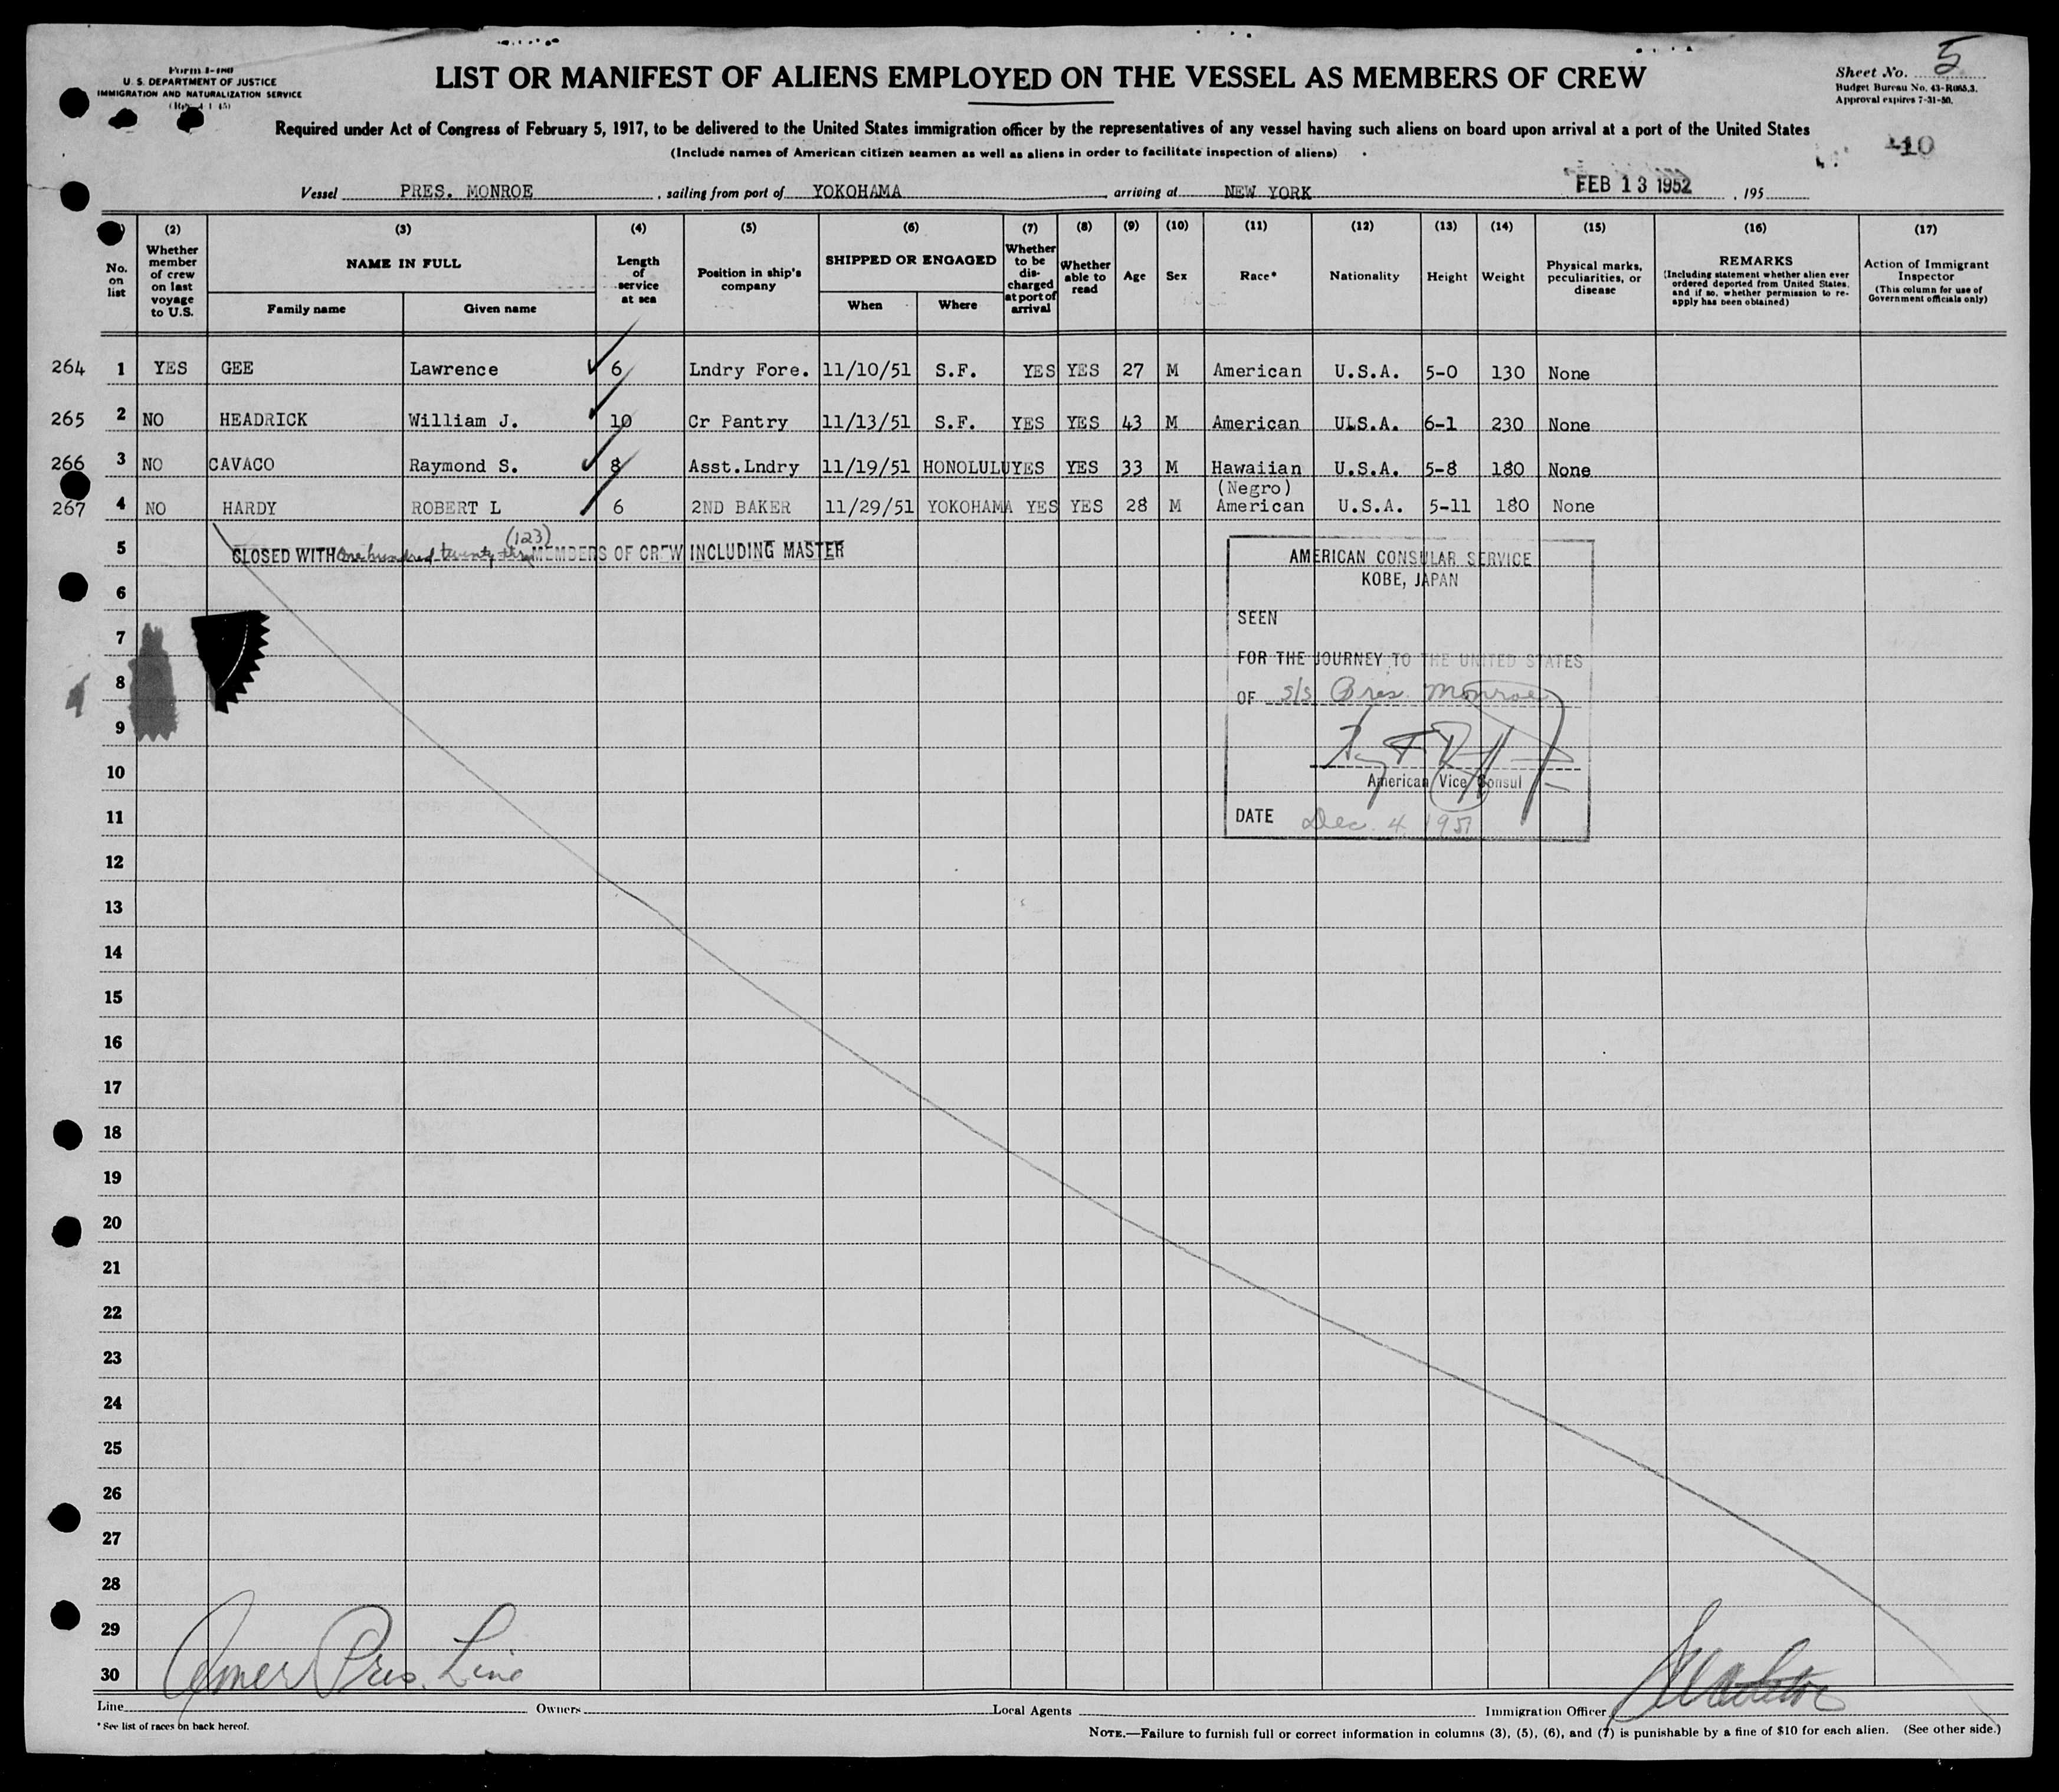 Form I-480
U. S. DEPARTMENT OF JUSTICE
IMMIGRATION AND NATURALIZATION SERVICE
(Rev. 4 1 45)
LIST OR MANIFEST OF ALIENS EMPLOYED ON THE VESSEL AS MEMBERS OF CREW
Sheet No. 5
Budget Bureau No. 43-R065.3.
Approval expires 7-31-50.
Required under Act of Congress of February 5, 1917, to be delivered to the United States immigration officer by the representatives of any vessel having such aliens on board upon arrival at a port of the United States
(Include names of American citizen seamen as well as aliens in order to facilitate inspection of aliens)
10
Vessel PRES. MONROE, sailing from port of YOKOHAMA, arriving at NEW YORK FEB 13 1952, 195
(2) (3) (4) (5) (6) (7) (8) (9) (10) (11) (12) (13) (14) (15) (16) (17)
No. on list
Whether member of crew on last voyage to U.S.
NAME IN FULL
Family name
Given name
Length of service at sea
Position in ship's company
SHIPPED OR ENGAGED
When
Where
Whether to be discharged at port of arrival
Whether able to read
Age
Sex
Race*
Nationality
Height
Weight
Physical marks, peculiarities, or disease
REMARKS
(Including statement whether alien ever ordered deported from United States, and if so, whether permission to re-apply has been obtained)
Action of Immigrant Inspector
(This column for use of Government officials only)
264 1 YES GEE Lawrence 6 Lndry Fore. 11/10/51 S.F. YES YES 27 M American U.S.A. 5-0 130 None
265 2 NO HEADRICK William J. 10 Cr Pantry 11/13/51 S.F. YES YES 43 M American ULS.A. 6-1 230 None
266 3 NO CAVACO Raymond S. 8 Asst.Lndry 11/19/51 HONOLULU YES YES 33 M Hawaiian U.S.A. 5-8 180 None
(Negro)
267 4 NO HARDY ROBERT L 6 2ND BAKER 11/29/51 YOKOHAMA YES YES 28 M American U.S.A. 5-11 180 None
(123)
5 CLOSED WITH one hundred twenty three MEMBERS OF CREW INCLUDING MASTER
AMERICAN CONSULAR SERVICE
KOBE, JAPAN
6
SEEN
7
FOR THE JOURNEY TO THE UNITED STATES
8
OF s/s Pres. Monroe
9
10
American Vice Consul
11
DATE Dec. 4, 1951
12
13
14
15
16
17
18
19
20
21
22
23
24
25
26
27
28
29
30
Line Amer Pres. Line Owners Local Agents Immigration Officer
* See list of races on back hereof.
NOTE.—Failure to furnish full or correct information in columns (3), (5), (6), and (7) is punishable by a fine of $10 for each alien. (See other side.)